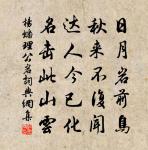 日月岩前鳥
秋來不復聞
達人今已化
名與此山雲
楊蟠理公岩詞典網集